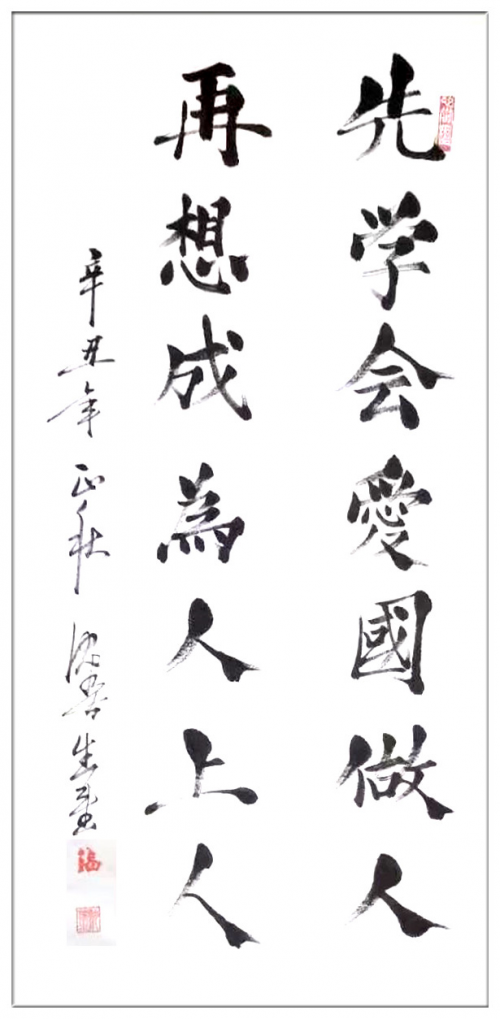 先学会愛國做人
再想成為人上人
辛丑年 正秋 生